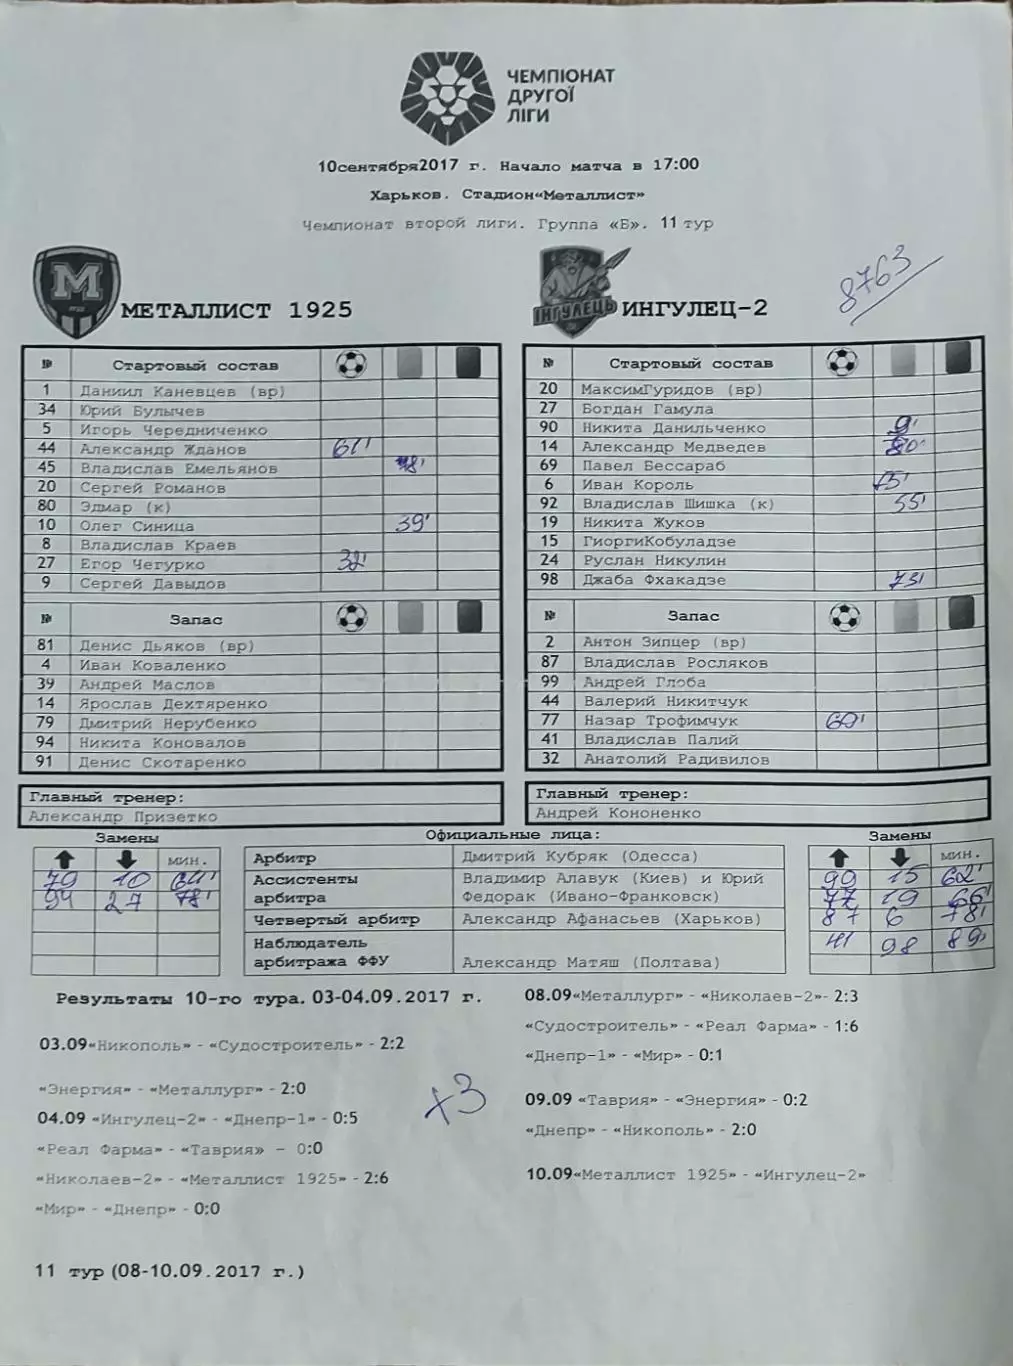 ЧЕМПІОНАТ
ДРУГОЇ
ЛІГИ
10сентября2017 г. Начало матча в 17:00
Харьков. Стадион«Металлист»
Чемпионат второй лиги. Группа «Б». 11 тур
8763
МЕТАЛЛИСТ 1925
ІНГУЛЕЦЬ ИНГУЛЕЦ-2
№ Стартовый состав
1 Даниил Каневцев (вр)
34 Юрий Булычев
5 Игорь Чередниченко
44 Александр Жданов 61'
45 Владислав Емельянов
20 Сергей Романов
80 Эдмар (к)
10 Олег Синица 39'
8 Владислав Краев
27 Егор Чегурко 32'
9 Сергей Давыдов
№ Запас
81 Денис Дьяков (вр)
4 Иван Коваленко
39 Андрей Маслов
14 Ярослав Дехтяренко
79 Дмитрий Нерубенко
94 Никита Коновалов
91 Денис Скотаренко
Главный тренер:
Александр Призетко
№ Стартовый состав
20 МаксимГуридов (вр)
27 Богдан Гамула
90 Никита Данильченко 9'
14 Александр Медведев 80'
69 Павел Бессараб
6 Иван Король 75'
92 Владислав Шишка (к) 55'
19 Никита Жуков
15 ГиоргиКобуладзе
24 Руслан Никулин
98 Джаба Фхакадзе 73'
№ Запас
2 Антон Зипцер (вр)
87 Владислав Росляков
99 Андрей Глоба
44 Валерий Никитчук
77 Назар Трофимчук
41 Владислав Палий
32 Анатолий Радивилов
Главный тренер:
Андрей Кононенко
Замены
мин.
79 10 64'
94 27 78'
Официальные лица:
Арбитр Дмитрий Кубряк (Одесса)
Ассистенты Владимир Алавук (Киев) и Юрий
арбитра Федорак (Ивано-Франковск)
Четвертый арбитр Александр Афанасьев (Харьков)
Наблюдатель
арбитража ФФУ Александр Матяш (Полтава)
Замены
мин.
99 15 62'
77 19 66'
87 6 78'
41 98 89'
Результаты 10-го тура. 03-04.09.2017 г.
03.09«Никополь» - «Судостроитель» - 2:2
«Энергия» - «Металлург» - 2:0
04.09 «Ингулец-2» - «Днепр-1» - 0:5
«Реал Фарма» - «Таврия» - 0:0
«Николаев-2» - «Металлист 1925» - 2:6
«Мир» - «Днепр» - 0:0
11 тур (08-10.09.2017 г.)
х3
08.09«Металлург» - «Николаев-2»- 2:3
«Судостроитель» - «Реал Фарма» - 1:6
«Днепр-1» - «Мир» - 0:1
09.09 «Таврия» - «Энергия» - 0:2
«Днепр» - «Никополь» - 2:0
10.09«Металлист 1925» - «Ингулец-2»